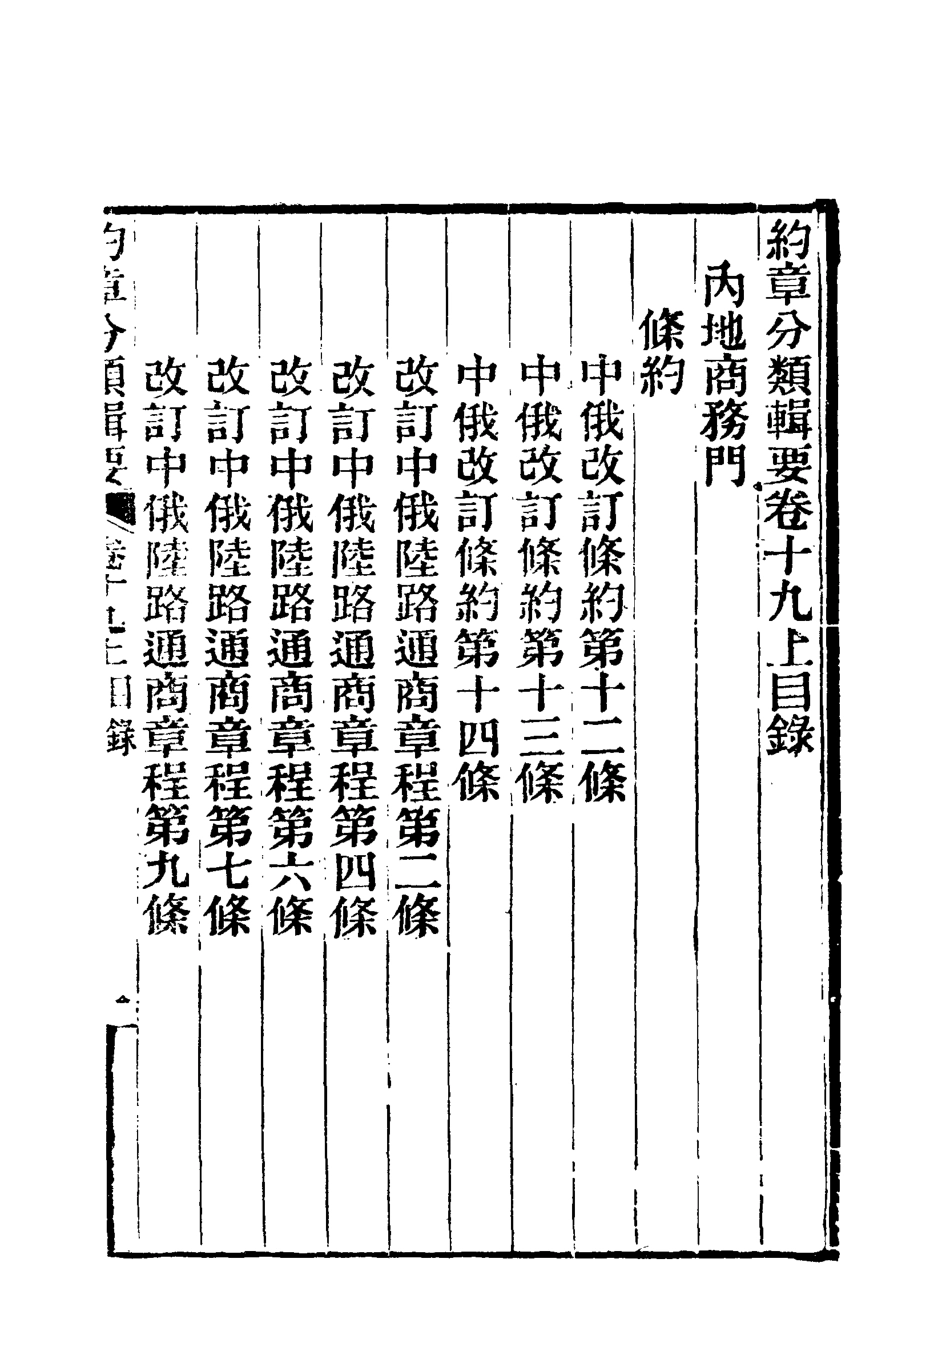 約章分類輯要卷十九上目錄
內地商務門
條約
中俄改訂條約第十二條
中俄改訂條約第十三條
中俄改訂條約第十四條
改訂中俄陸路通商章程第二條
改訂中俄陸路通商章程第四條
改訂中俄陸路通商章程第六條
改訂中俄陸路通商章程第七條
改訂中俄陸路通商章程第九條
約章分類輯要 卷十九上目錄